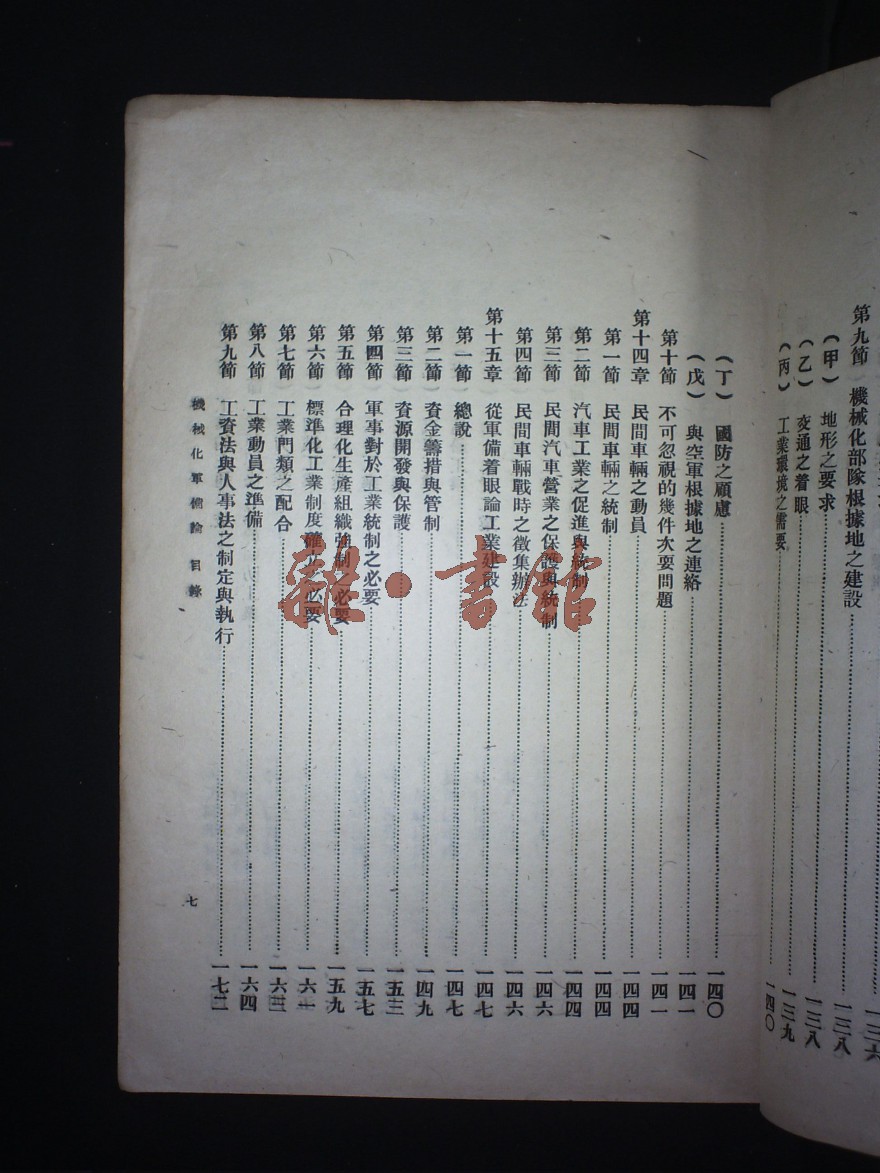 一三六
第九節 機械化部隊根據地之建設……一三八
（甲）地形之要求……一三八
（乙）交通之着眼……一三九
（丙）工業環境之需要……一四〇
（丁）國防之顧慮……一四〇
（戊）與空軍根據地之連絡……一四一
第十節 不可忽視的幾件次要問題……一四一
第十四章 民間車輛之動員……一四四
第一節 民間車輛之統制……一四四
第二節 汽車工業之促進與統制……一四四
第三節 民間汽車營業之保護與統制……一四六
第四節 民間車輛戰時之徵集辦法……一四六
第十五章 從軍備着眼論工業建設……一四七
第一節 總說……一四七
第二節 資金籌措與管制……一四九
第三節 資源開發與保護……一五三
第四節 軍事對於工業統制之必要……一五七
第五節 合理化生產組織強制之必要……一五九
第六節 標準化工業制度確立之必要……一六一
第七節 工業門類之配合……一六三
第八節 工業動員之準備……一六四
第九節 工資法與人事法之制定與執行……一七二
機械化軍備論 目錄
七
雜·書館